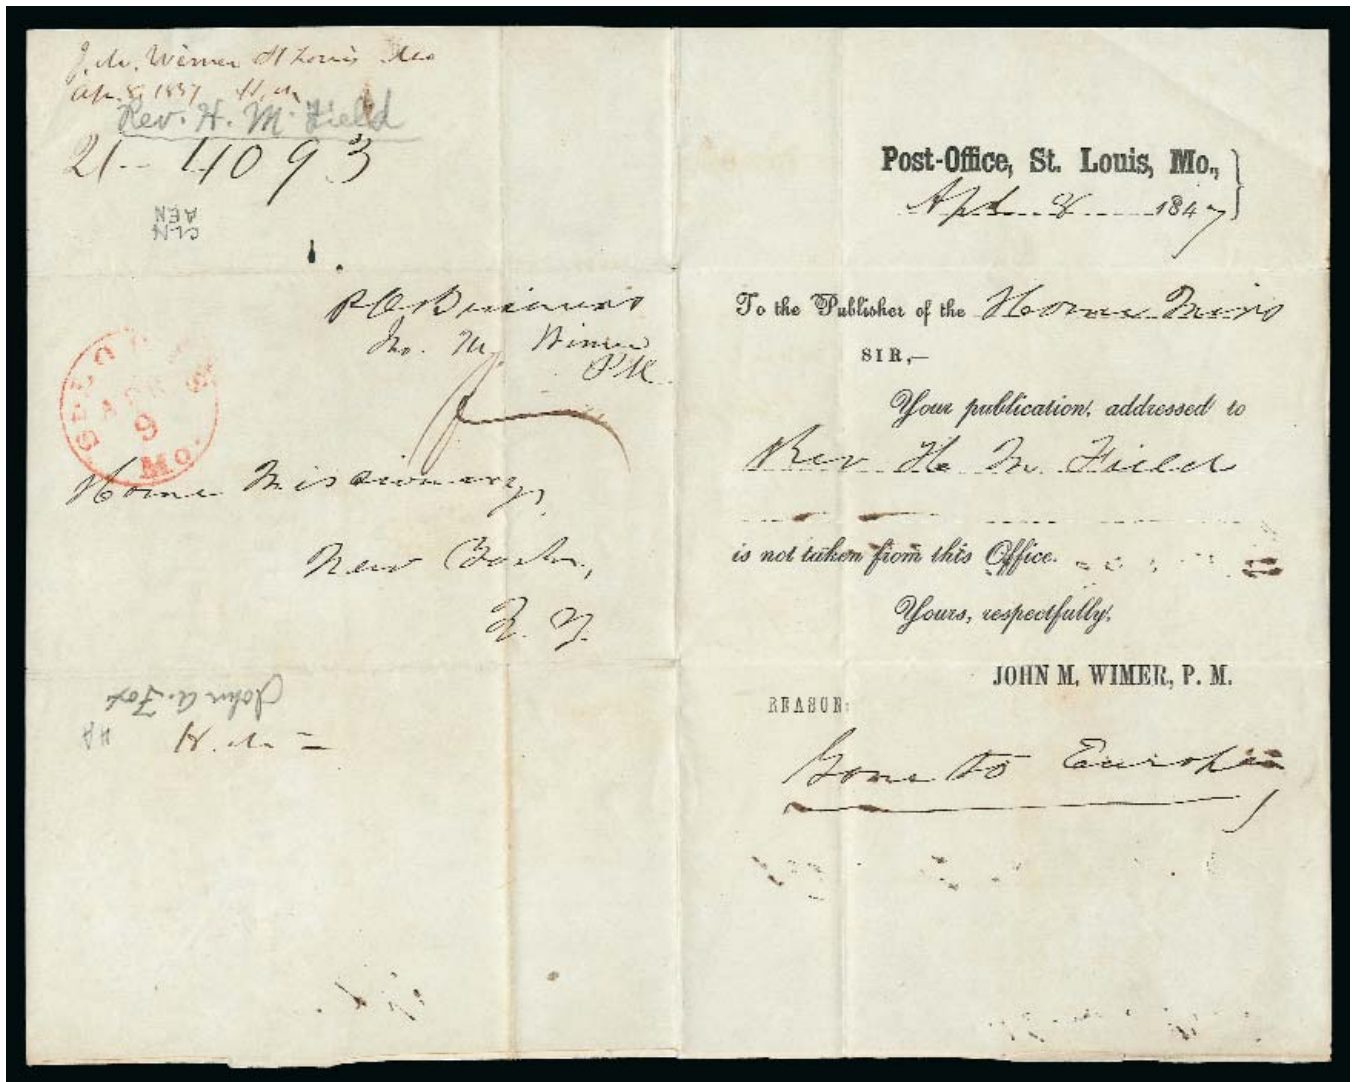 J. M. Wimer St Louis Mo
Ap. 8, 1847 H. M
Rev. H. M. Field
21-- 4093
CLN
AEN
P O Business
Jno. M. Wimer
PM
ST. LOUIS
APR
9
MO.
Home Missionary,
New York,
N. Y.
John A. Fox
H. M. =
Post-Office, St. Louis, Mo.,
Apl. 8 1847
To the Publisher of the Home Miss
SIR,—
Your publication, addressed to
Rev H. M. Field
is not taken from this Office.
Yours, respectfully,
JOHN M. WIMER, P. M.
REASON:
Gone to Europe